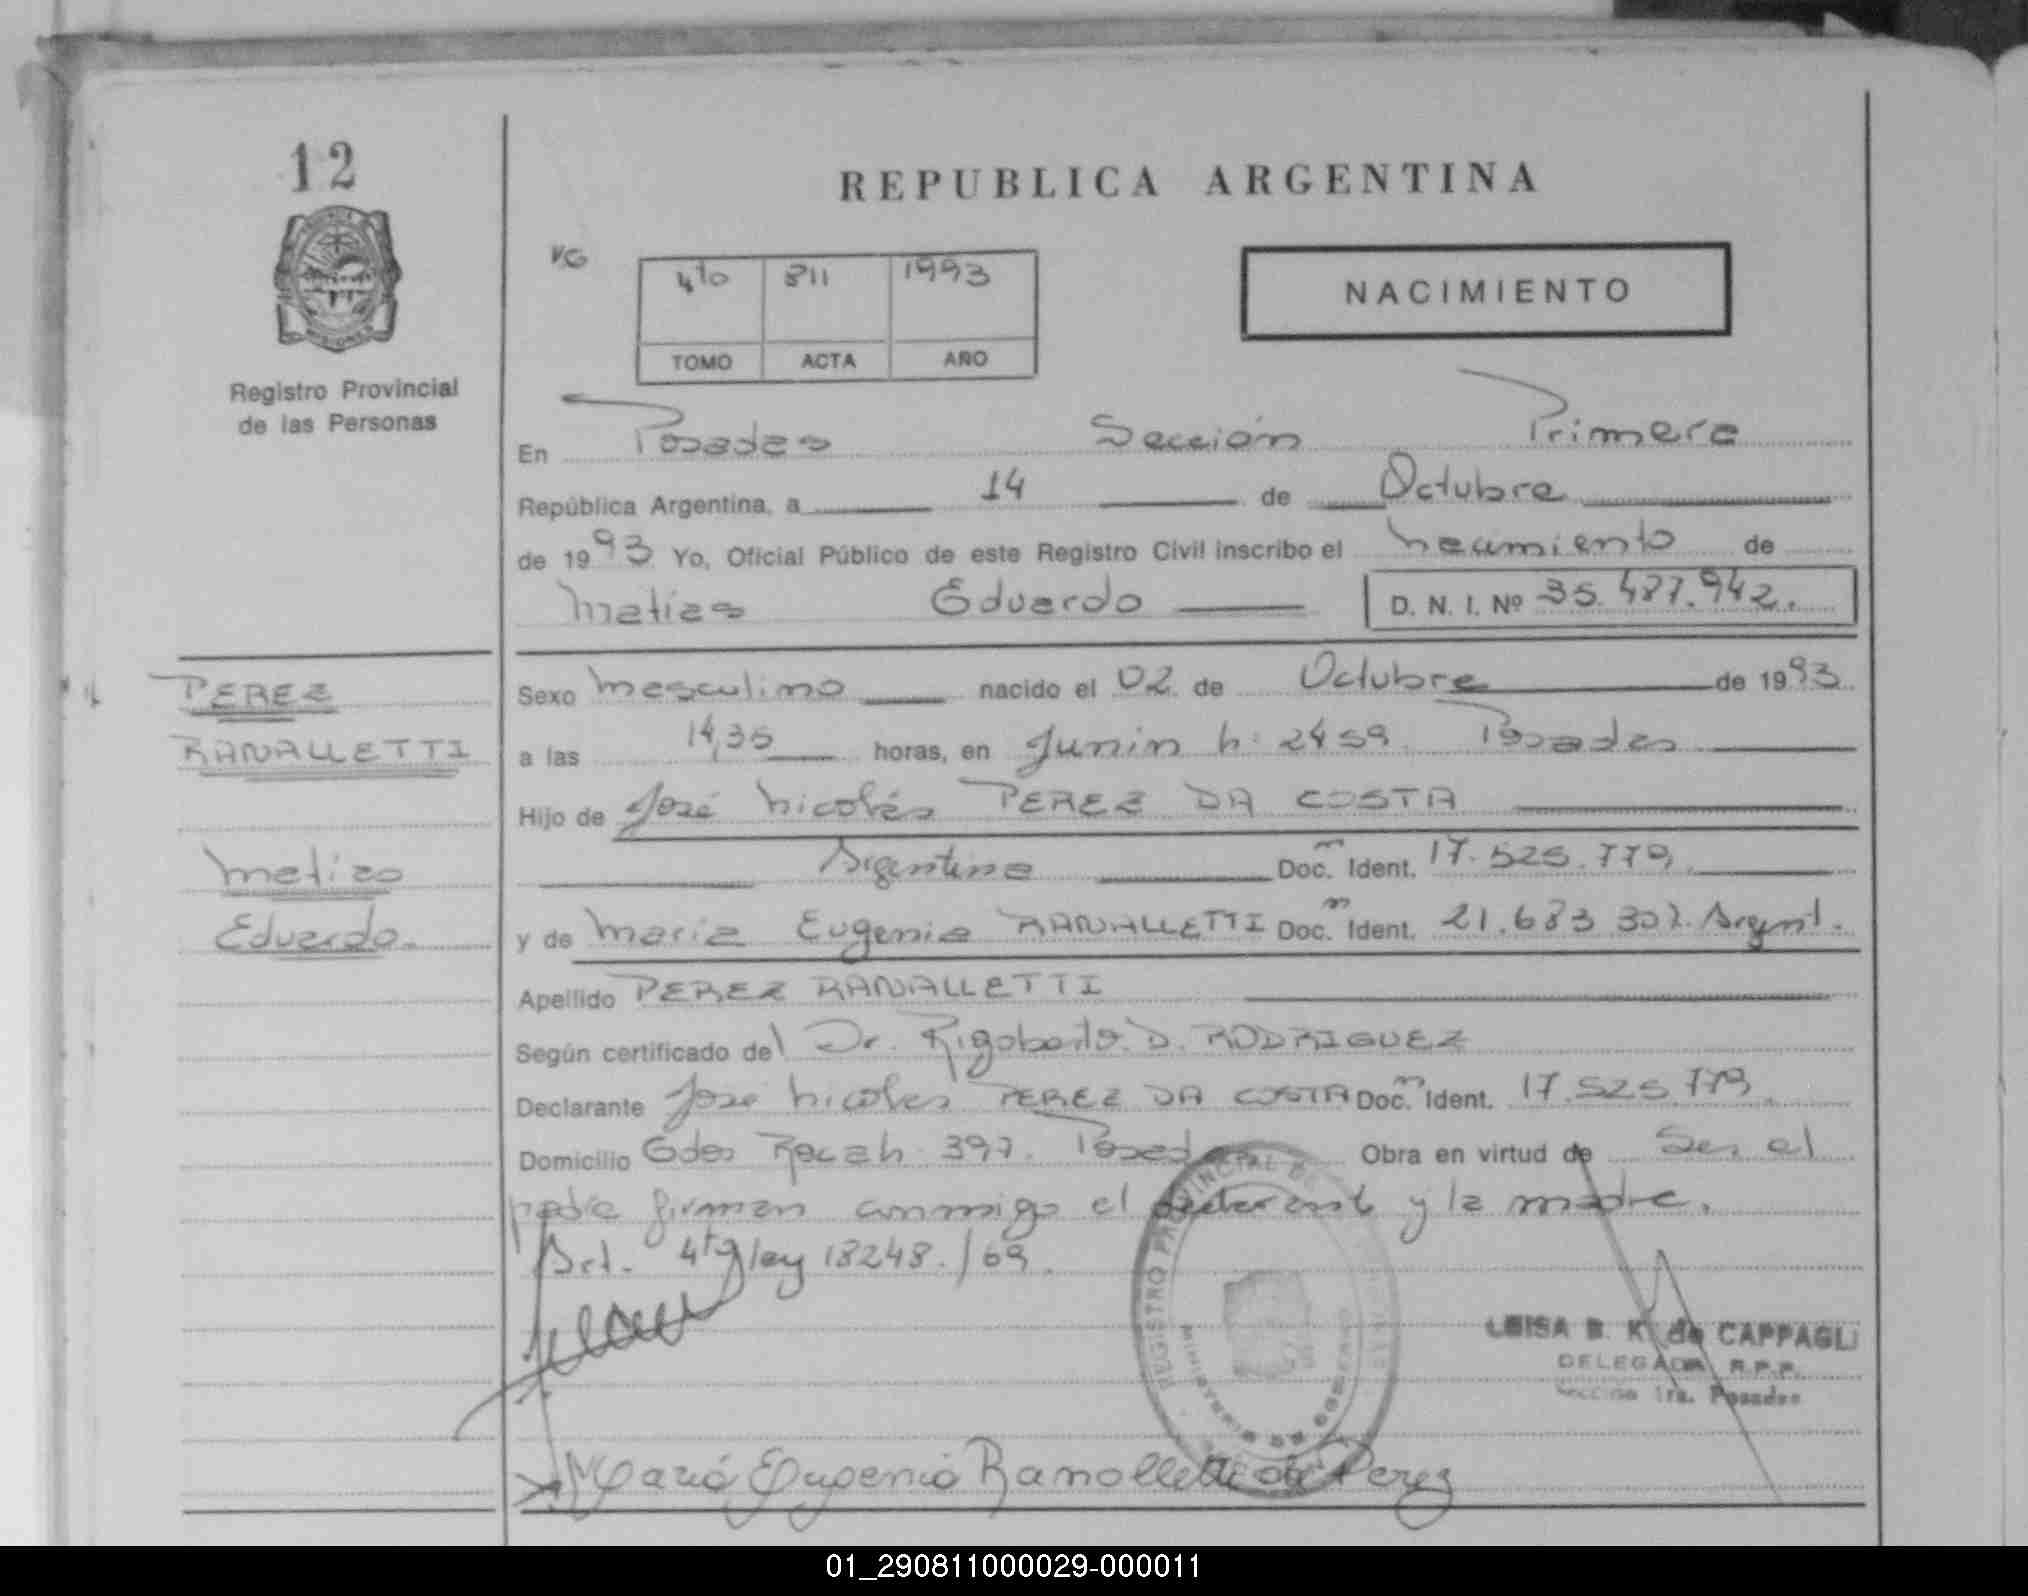 12
REPUBLICA ARGENTINA
VG
4to 811 1993
TOMO ACTA AÑO
NACIMIENTO
MISIONES
Registro Provincial
de las Personas
En Posadas Sección Primera
República Argentina, a 14 de Octubre
de 1993 Yo, Oficial Público de este Registro Civil inscribo el nacimiento de
Matías Eduardo D. N. I. Nº 35.487.942.
PEREZ
RANALLETTI
Matías
Eduardo.
Sexo masculino nacido el 02 de Octubre de 1993
a las 14,35 horas, en Junin n: 2459. Posadas
Hijo de José Nicolás PEREZ DA COSTA
Argentino Doc. m Ident. 17.525.779.
y de María Eugenia RANALLETTI Doc. m Ident. 21.683.307. Argent.
Apellido PEREZ RANALLETTI
Según certificado del Dr. Rigoberto D. RODRIGUEZ
Declarante José Nicolás PEREZ DA COSTA Doc. m Ident. 17.525.779.
Domicilio Gdor Rocah 397. Posadas Obra en virtud de Ser el
padre firman conmigo el declarante y la madre.
Art. 4to ley 18248./69.
REGISTRO PROVINCIAL DE
LEISA B. K. de CAPPAGLI
DELEGADA R.P.P.
Sección 1ra. Posadas
María Eugenia Ranalletti de Perez
01_290811000029-000011